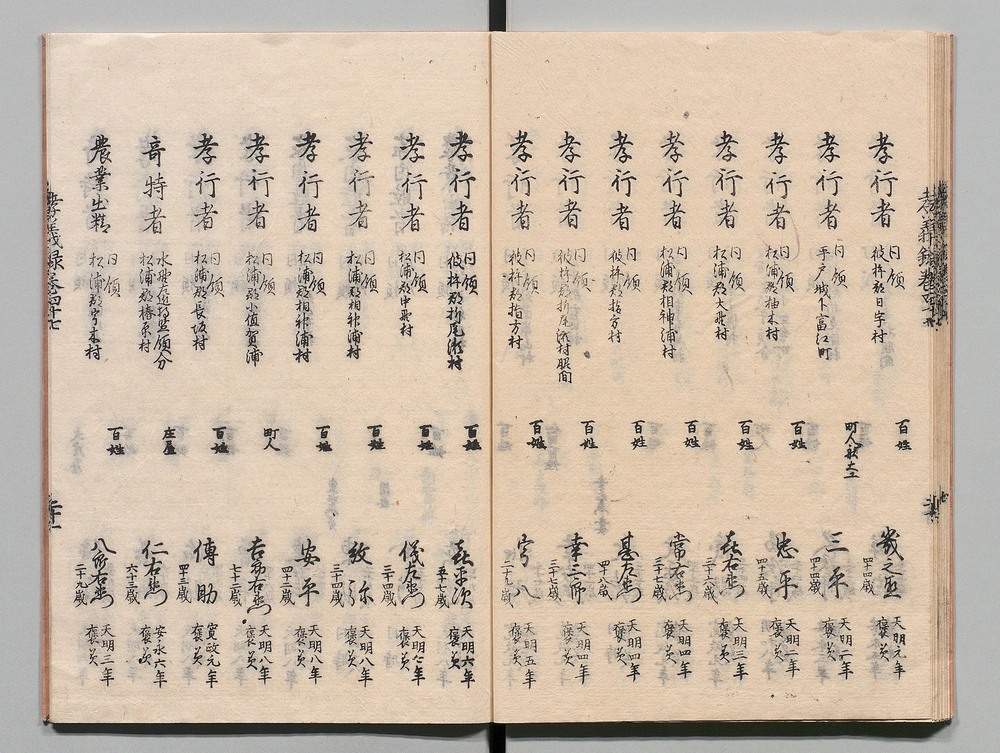 孝行者
同領
彼杵郡日宇村
百姓
幾之丞
四十四歳
天明元年
褒美
孝行者
同領
平戸城下富江町
町人船大工
三平
四十四歳
天明二年
褒美
孝行者
同領
松浦郡柚木村
百姓
忠平
四十五歳
天明二年
褒美
孝行者
同領
松浦郡大野村
百姓
喜右衛門
三十六歳
天明三年
褒美
孝行者
同領
松浦郡相神浦村
百姓
常右衛門
三十七歳
天明四年
褒美
孝行者
同領
彼杵郡指方村
百姓
甚左衛門
四十八歳
天明四年
褒美
孝行者
同領
彼杵郡折尾瀬村
百姓
幸三郎
三十七歳
天明四年
褒美
孝行者
同領
彼杵郡指方村
百姓
宇八
二十九歳
天明五年
褒美
孝行者
同領
彼杵郡折尾瀬村
百姓
喜平次
五十七歳
天明六年
褒美
孝行者
同領
松浦郡中野村
百姓
儀左衛門
三十四歳
天明七年
褒美
孝行者
同領
松浦郡相神浦村
百姓
紋弥
三十四歳
天明八年
褒美
孝行者
同領
松浦郡相神浦村
百姓
安平
四十二歳
天明八年
褒美
孝行者
同領
松浦郡小値賀浦
町人
吉郎右衛門
七十二歳
天明八年
褒美
孝行者
同領
松浦郡長坂村
百姓
傳助
四十三歳
寛政元年
褒美
奇特者
水野左近将監領分
松浦郡椿原村
庄屋
仁右衛門
六十三歳
安永六年
褒美
農業出精
同領
百姓
八郎右衛門
二十九歳
天明三年
褒美